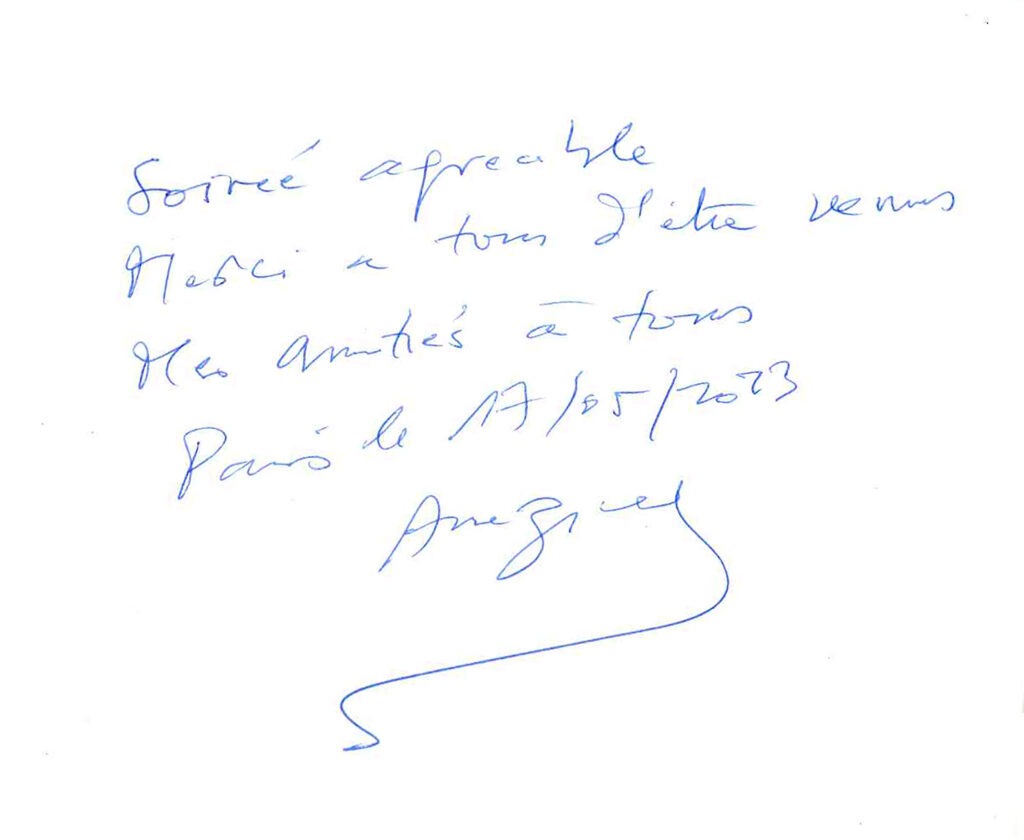 Soirée agreable
Merci a tous d'être venus
Mes amitiés à tous
Paris le 17/05/2023